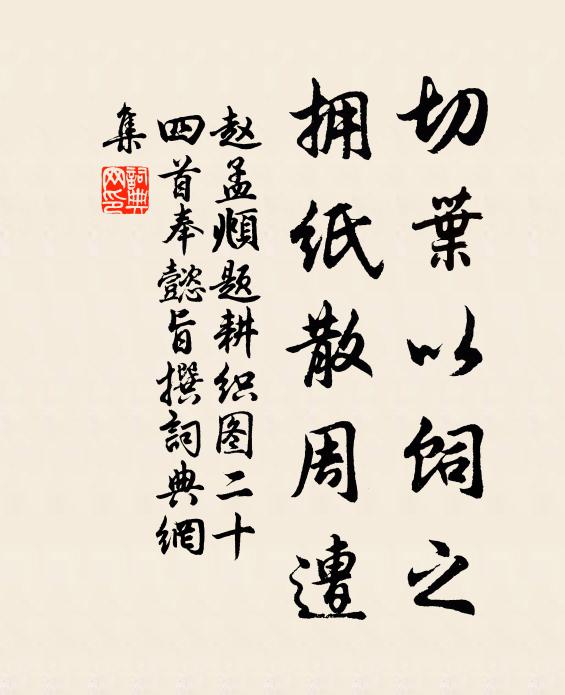 切葉以飼之
拥紙散周遭
赵孟頫题耕织图二十
四首奉懿旨撰詞典網
集
詞典
网印